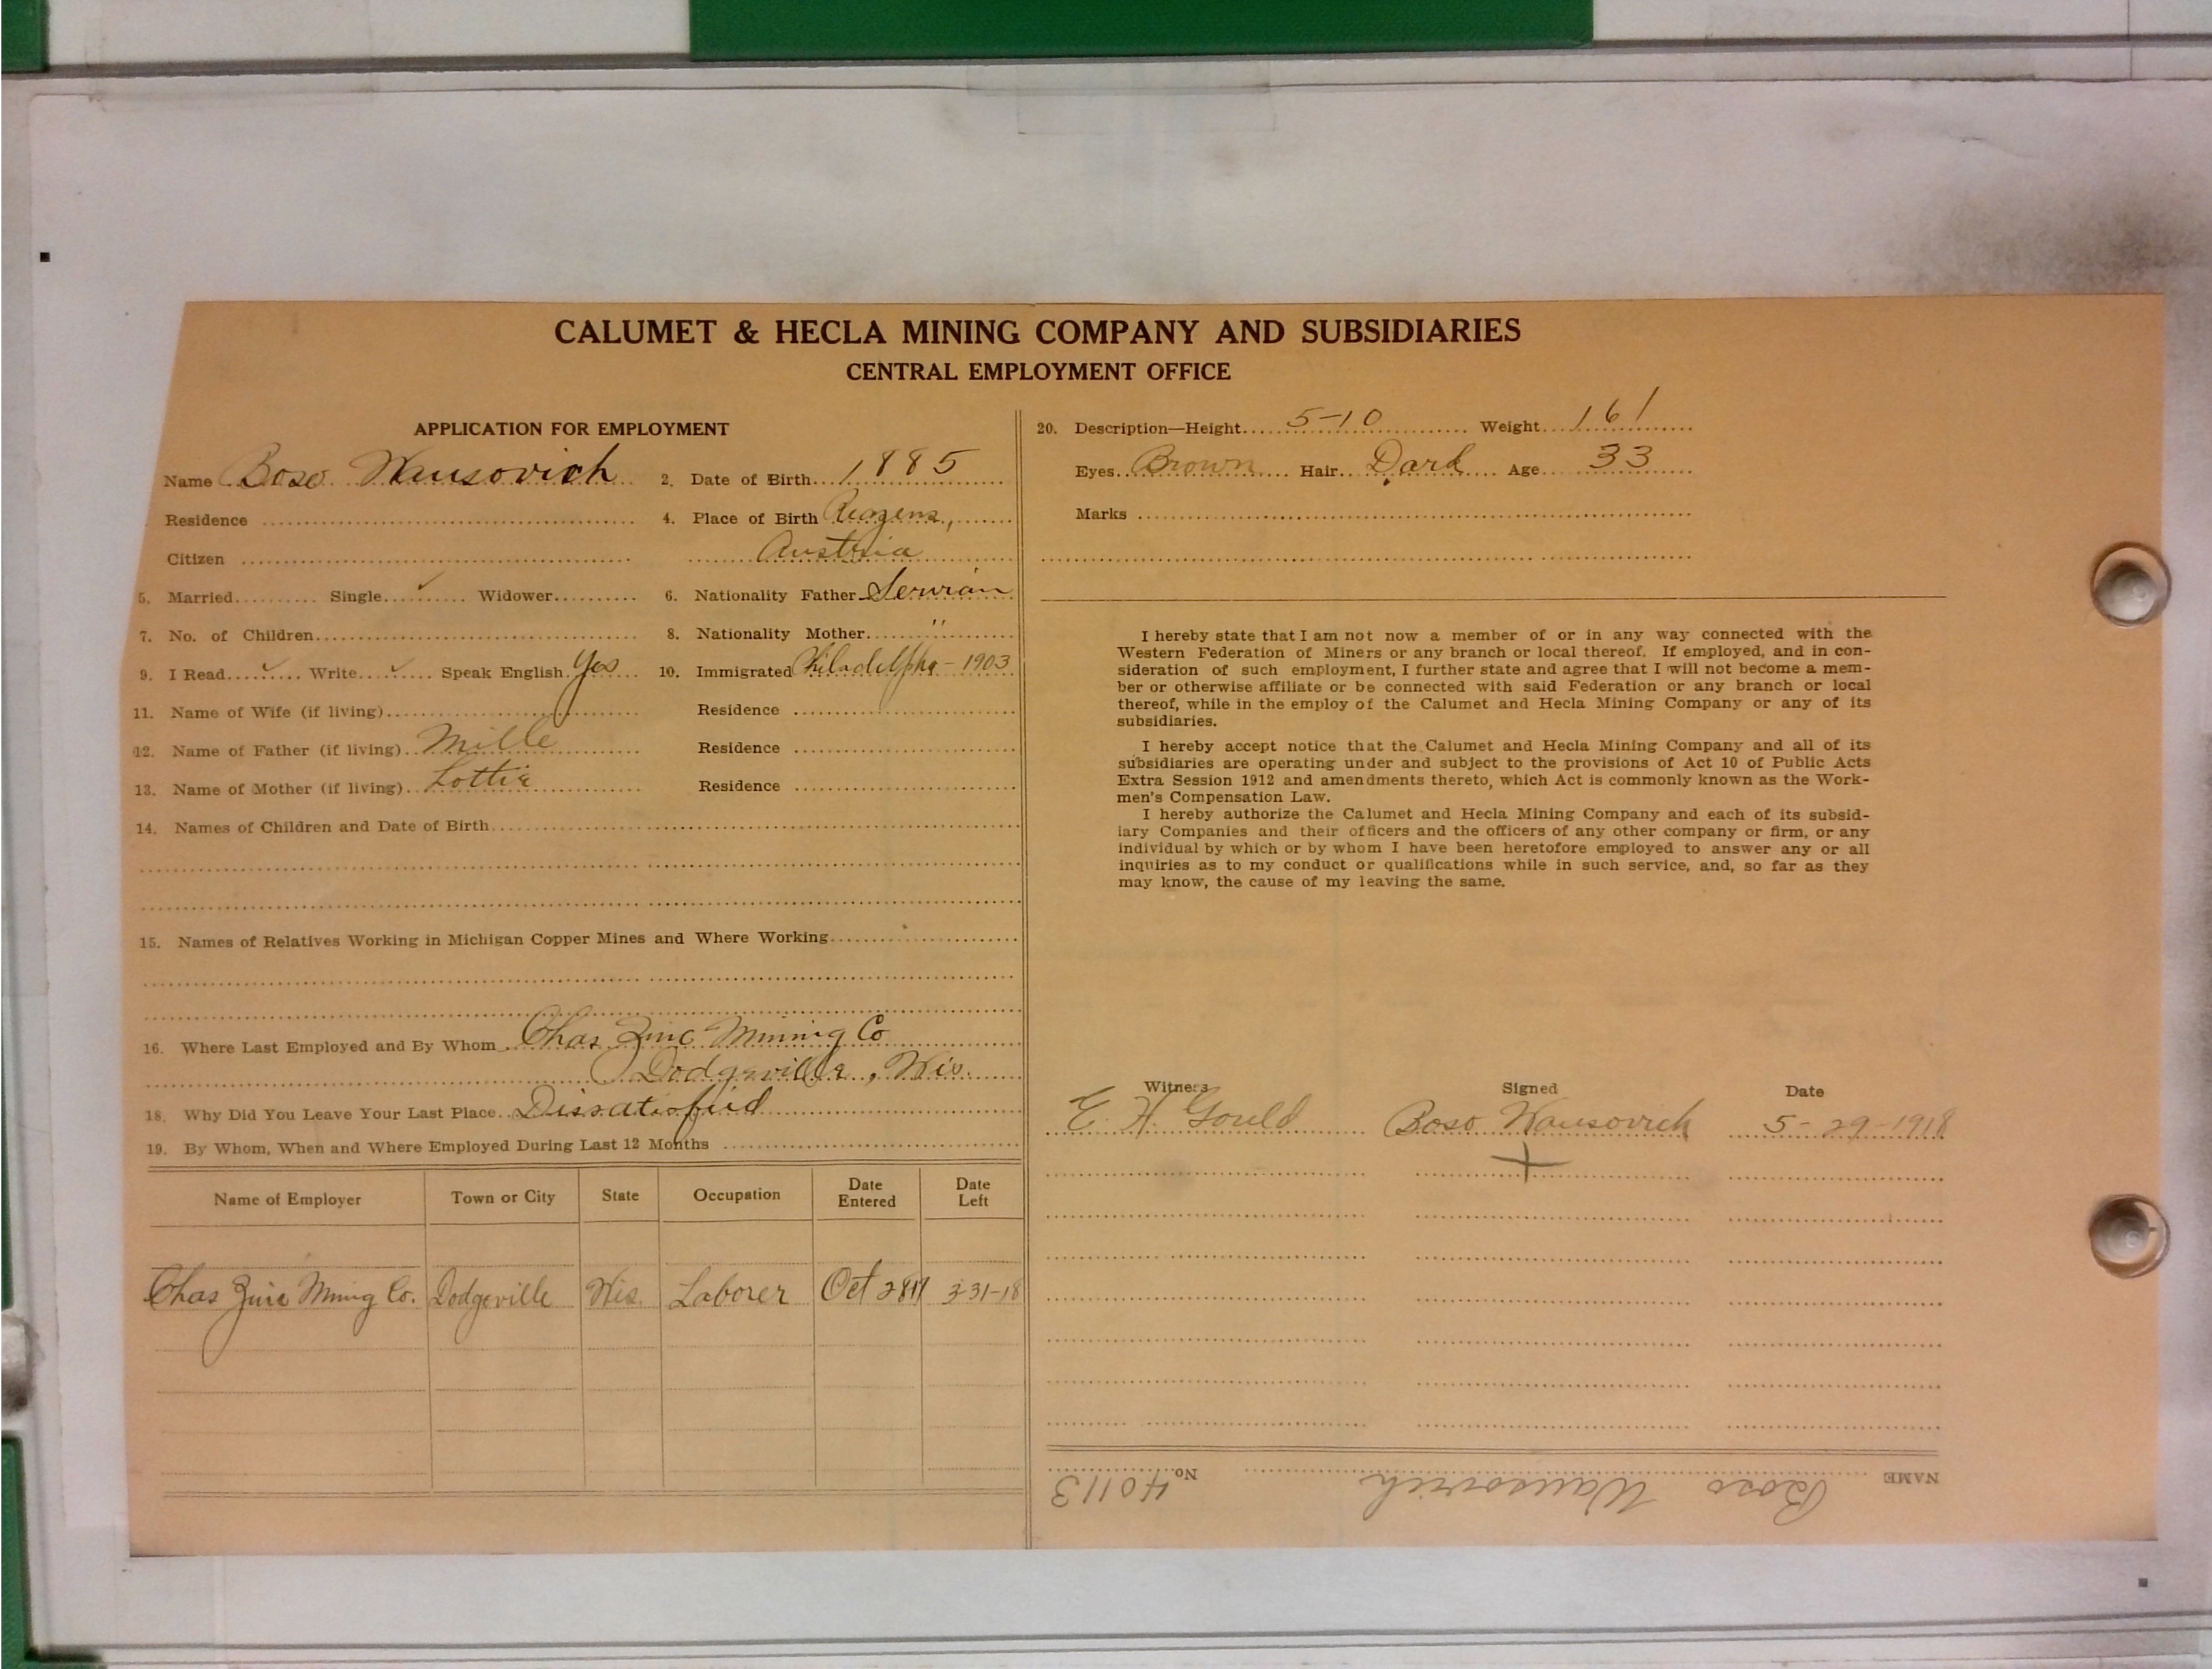 CALUMET & HECLA MINING COMPANY AND SUBSIDIARIES
CENTRAL EMPLOYMENT OFFICE
APPLICATION FOR EMPLOYMENT
Name Boso Wausovich 2. Date of Birth 1885
Residence 4. Place of Birth
Citizen Austria
5. Married Single ✓ Widower 6. Nationality Father Servian
7. No. of Children 8. Nationality Mother "
9. I Read ✓ Write ✓ Speak English Yes 10. Immigrated Philadelpha - 1903
11. Name of Wife (if living) Residence
12. Name of Father (if living) Mille Residence
13. Name of Mother (if living) Lottie Residence
14. Names of Children and Date of Birth
15. Names of Relatives Working in Michigan Copper Mines and Where Working
16. Where Last Employed and By Whom Chas Zinc Mining Co
Dodgeville, Wis.
18. Why Did You Leave Your Last Place Dissatisfied
19. By Whom, When and Where Employed During Last 12 Months
Name of Employer Town or City State Occupation Date Entered Date Left
Chas Zinc Minig Co. Dodgeville Wis. Laborer Oct 28 17 3-31-18
20. Description—Height 5-10 Weight 161
Eyes Brown Hair Dark Age 33
Marks
I hereby state that I am not now a member of or in any way connected with the
Western Federation of Miners or any branch or local thereof. If employed, and in con-
sideration of such employment, I further state and agree that I will not become a mem-
ber or otherwise affiliate or be connected with said Federation or any branch or local
thereof, while in the employ of the Calumet and Hecla Mining Company or any of its
subsidiaries.
I hereby accept notice that the Calumet and Hecla Mining Company and all of its
subsidiaries are operating under and subject to the provisions of Act 10 of Public Acts
Extra Session 1912 and amendments thereto, which Act is commonly known as the Work-
men's Compensation Law.
I hereby authorize the Calumet and Hecla Mining Company and each of its subsid-
iary Companies and their officers and the officers of any other company or firm, or any
individual by which or by whom I have been heretofore employed to answer any or all
inquiries as to my conduct or qualifications while in such service, and, so far as they
may know, the cause of my leaving the same.
Witness Signed Date
E. H. Gould Boso Wausovich 5-29-1918
+
NAME Boso Wausovich No. 40113